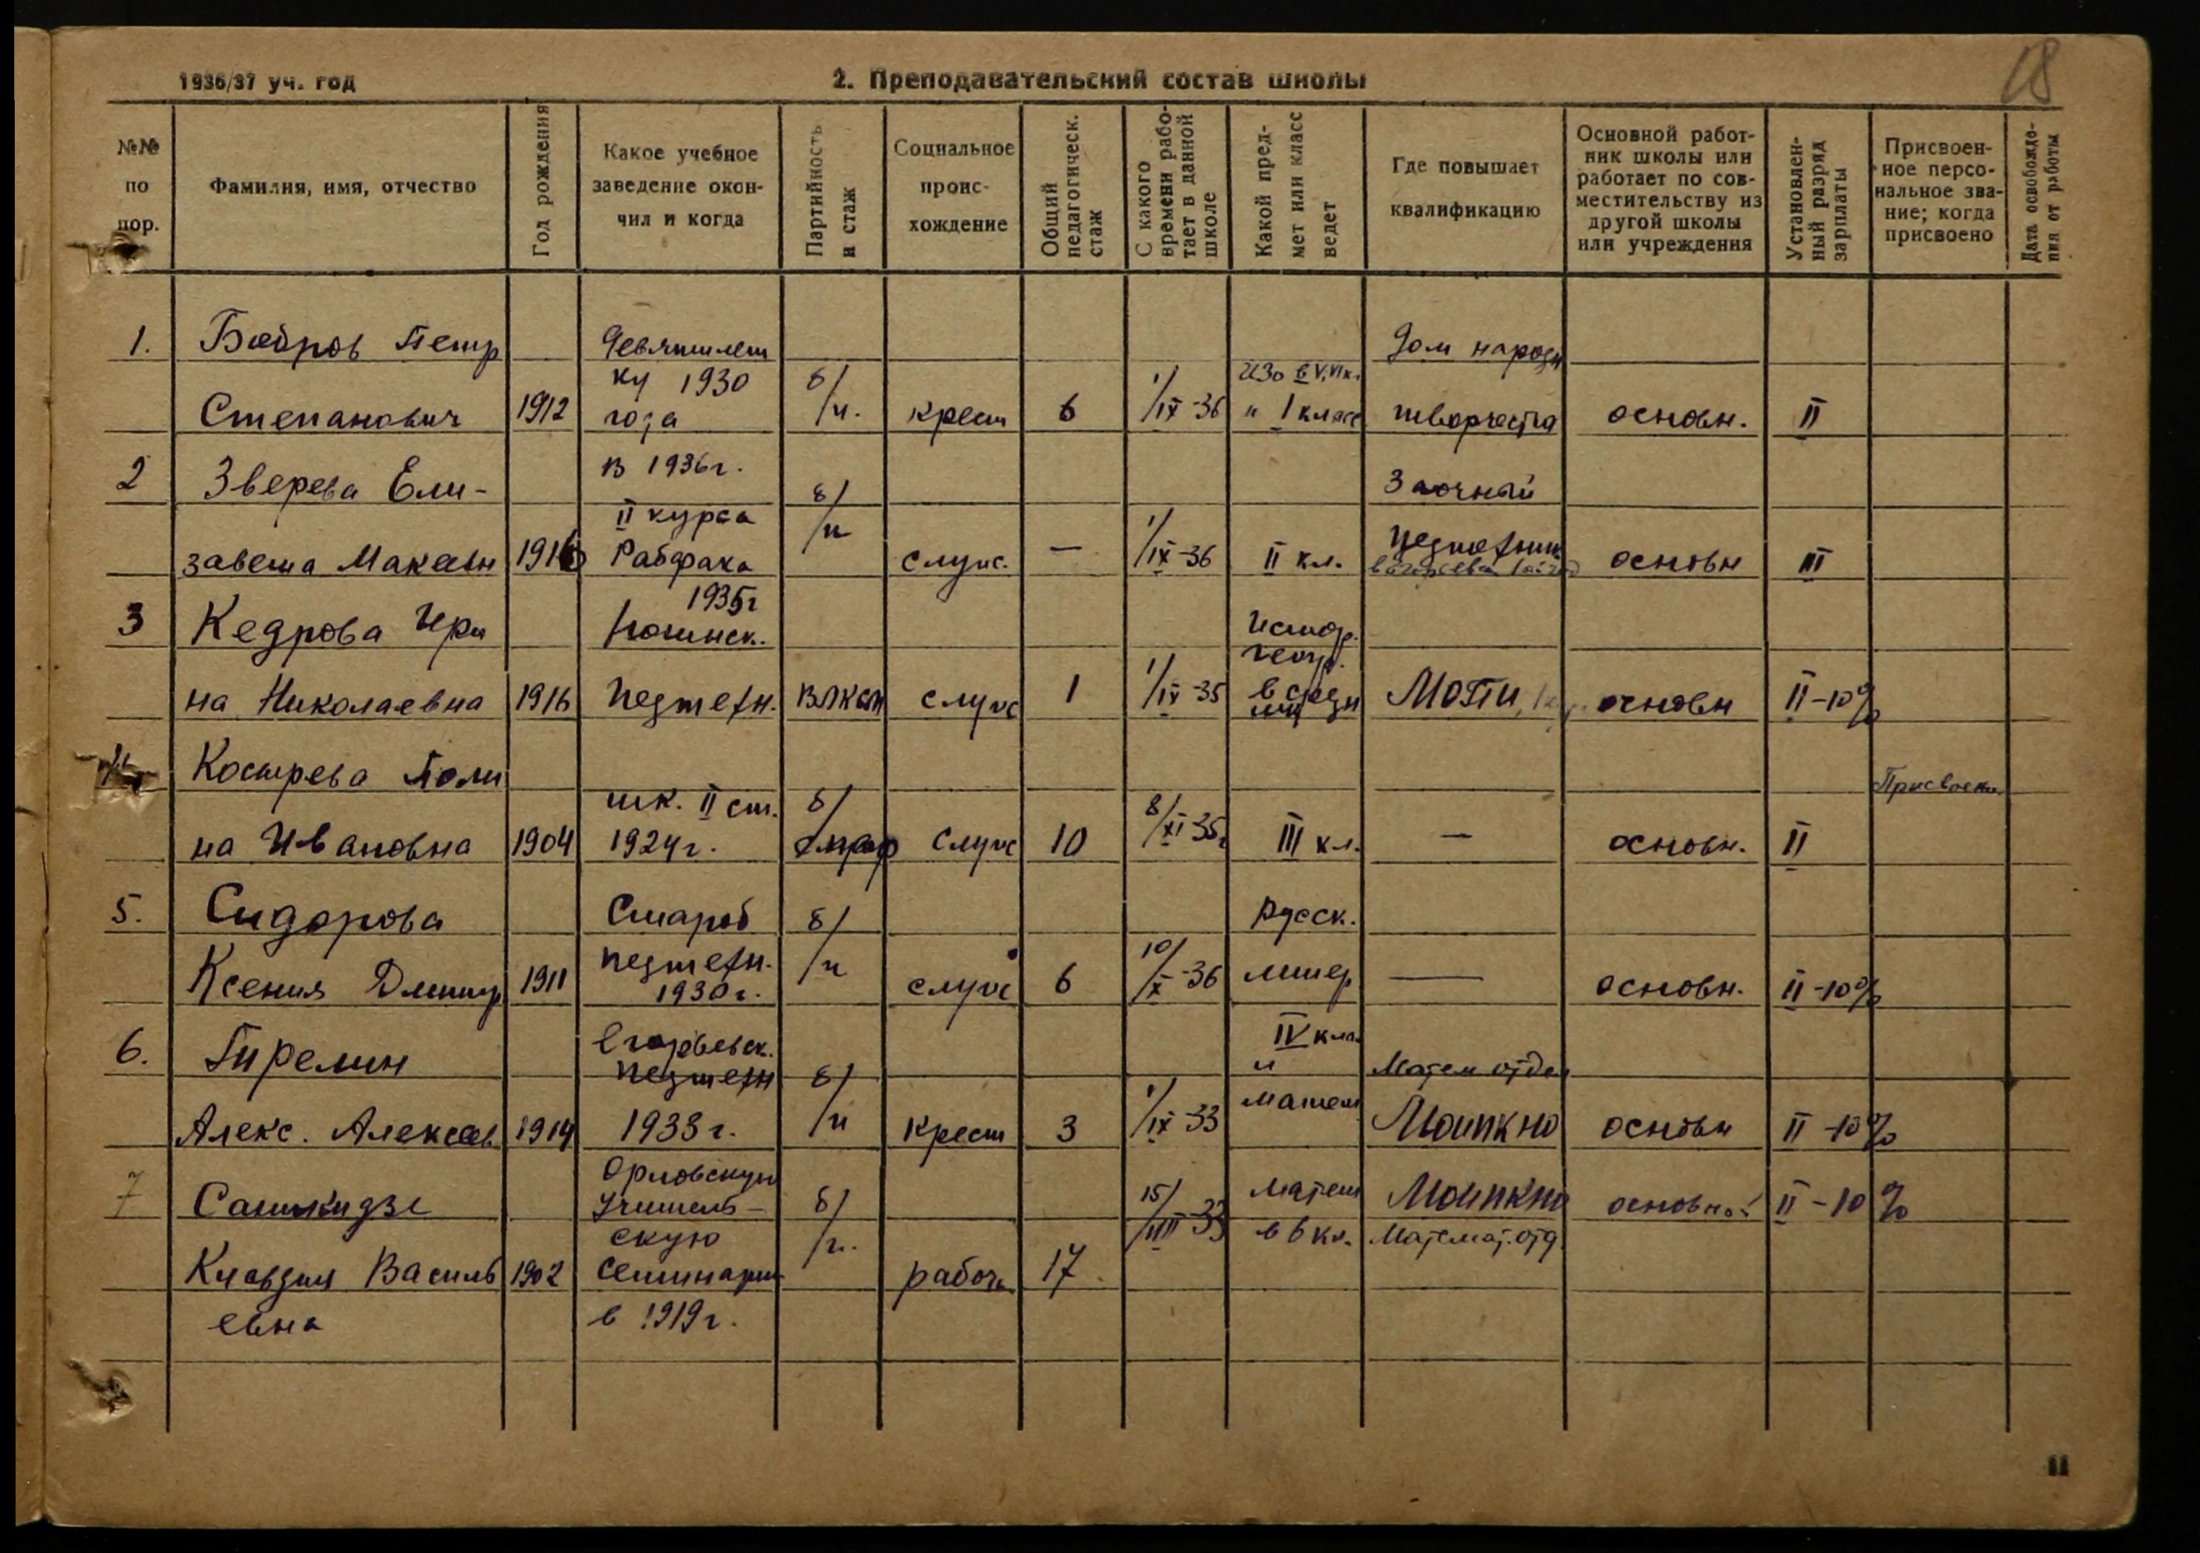 18
1936/37 уч. год
2. Преподавательский состав школы
№№ по пор.
Фамилия, имя, отчество
Год рождения
Какое учебное заведение окончил и когда
Партийность и стаж
Социальное происхождение
Общий педагогическ. стаж
С какого времени работает в данной школе
Какой предмет или класс ведет
Где повышает квалификацию
Основной работник школы или работает по совместительству из другой школы или учреждения
Установленный разряд зарплаты
Присвоенное персональное звание; когда присвоено
Дата освобождения от работы
1. Бобров Петр Девятилет Дом народн
ку 1930 б/ ИЗо в V, VI кл.
Степанович 1912 года /п. крест 6 1/IX-36 и I класс творчества основн. II
2 Зверева Ели- в 1936г. Заочный
II курса б/
завета Макеевн 1916 Рабфака /п служ. — 1/IX-36 II кл. Педтехник основн III
1935г
3 Кедрова Ири Ногинск. Истор.
геогр.
на Николаевна 1916 Педтехн. ВЛКСМ служ 1 1/IX-35 в средн МОПи, основн II-10%
Кострева Поли Присвоено
шк. II ст. б/
на Ивановна 1904 1924г. служ 10 8/XI-35г III кл. — основн. II
5. Сидорова Староб б/ Русск.
Ксения Дмитр 1911 педтехн. /п служ 6 10/X-36 литер — основн. II-10%
1930г.
6. Гирелин Егорьевск. IV кла
педтехн б/ и Матем отдел
матем
Алекс. Алексеев 1914 1933г. /п крест 3 1/IX-33 Моипкно основн II-10%
Орловскую
7 Учитель- б/ 15/VIII-33 Матем Моипкно основной II-10%
скую /п. в 6 кл. Математ. отд
Клавдия Василь 1902 Семинарию рабоч 17
евна в 1919г.
11